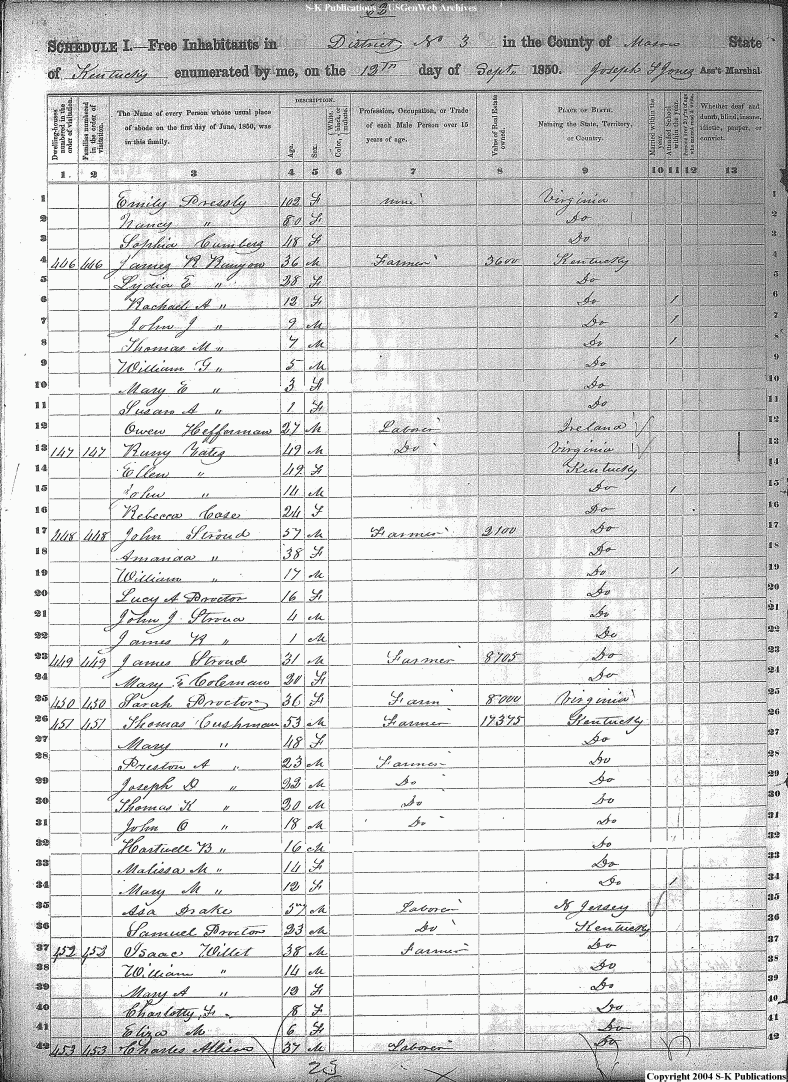 S-K Publications - USGenWeb Archives
SCHEDULE I.—Free Inhabitants in District No 3 in the County of Mason State
of Kentucky enumerated by me, on the 12th day of Sept. 1850. Joseph Ass't Marshal
Dwelling-houses numbered in the order of visitation.
Families numbered in the order of visitation.
The Name of every Person whose usual place of abode on the first day of June, 1850, was in this family.
DESCRIPTION.
Age.
Sex.
Color,
Profession, Occupation, or Trade of each Male Person over 15 years of age.
Value of Real Estate owned.
PLACE OF BIRTH. Naming the State, Territory, or Country.
Married within the year.
Attended School within the year.
Whether deaf and dumb, blind, insane, idiotic, pauper, or convict.
1 2 3 4 5 6 7 8 9 10 11 12 13
1 Emily Pressly 102 F none Virginia 1
2 Nancy " 80 F Do 2
3 Sophia 48 F Do 3
4 446 446 James R Runyon 36 M Farmer 3600 Kentucky 4
5 Lydia E " 28 F Do 5
6 Rachael A " 12 F Do 1 6
7 John J " 9 M Do 1 7
8 Thomas M " 7 M Do 1 8
9 William G " 5 M Do 9
10 Mary E " 3 F Do 10
11 Susan A " 1 F Do 11
12 Owen Hefferman 27 M Laborer Ireland 12
13 147 147 49 M Do Virginia 13
14 Ellen " 49 F Kentucky 14
15 John " 14 M Do 1 15
16 Rebecca Case 24 F Do 16
17 448 448 John Stroud 57 M Farmer 2100 Do 17
18 Amanda " 38 F Do 18
19 William " 17 M Do 1 19
20 Lucy A Proctor 16 F Do 20
21 John J Stroud 4 M Do 21
22 James R " 1 M Do 22
23 449 449 James Stroud 31 M Farmer 8705 Do 23
24 Mary E Coleman 20 F Do 24
25 450 450 Sarah Proctor 36 F Farm 8000 Virginia 25
26 451 451 Thomas Cushman 53 M Farmer 17375 Kentucky 26
27 Mary " 48 F Do 27
28 Preston A " 23 M Farmer Do 28
29 Joseph D " 22 M Do Do 29
30 Thomas K " 20 M Do Do 30
31 John O " 18 M Do Do 31
32 Hartwell B " 16 M Do 32
33 Malissa M " 14 F Do 33
34 Mary M " 12 F Do 1 34
35 Asa Drake 57 M Laborer N Jersey 35
36 Samuel Proctor 23 M Do Kentucky 36
37 452 452 Isaac Willet 38 M Farmer Do 37
38 William " 14 M Do 38
39 Mary A " 12 F Do 39
40 Charlotty F " 8 F Do 40
41 Eliza M 6 F Do 41
42 453 453 Charles Allison 37 M Laborer Do 42
Copyright 2004 S-K Publications